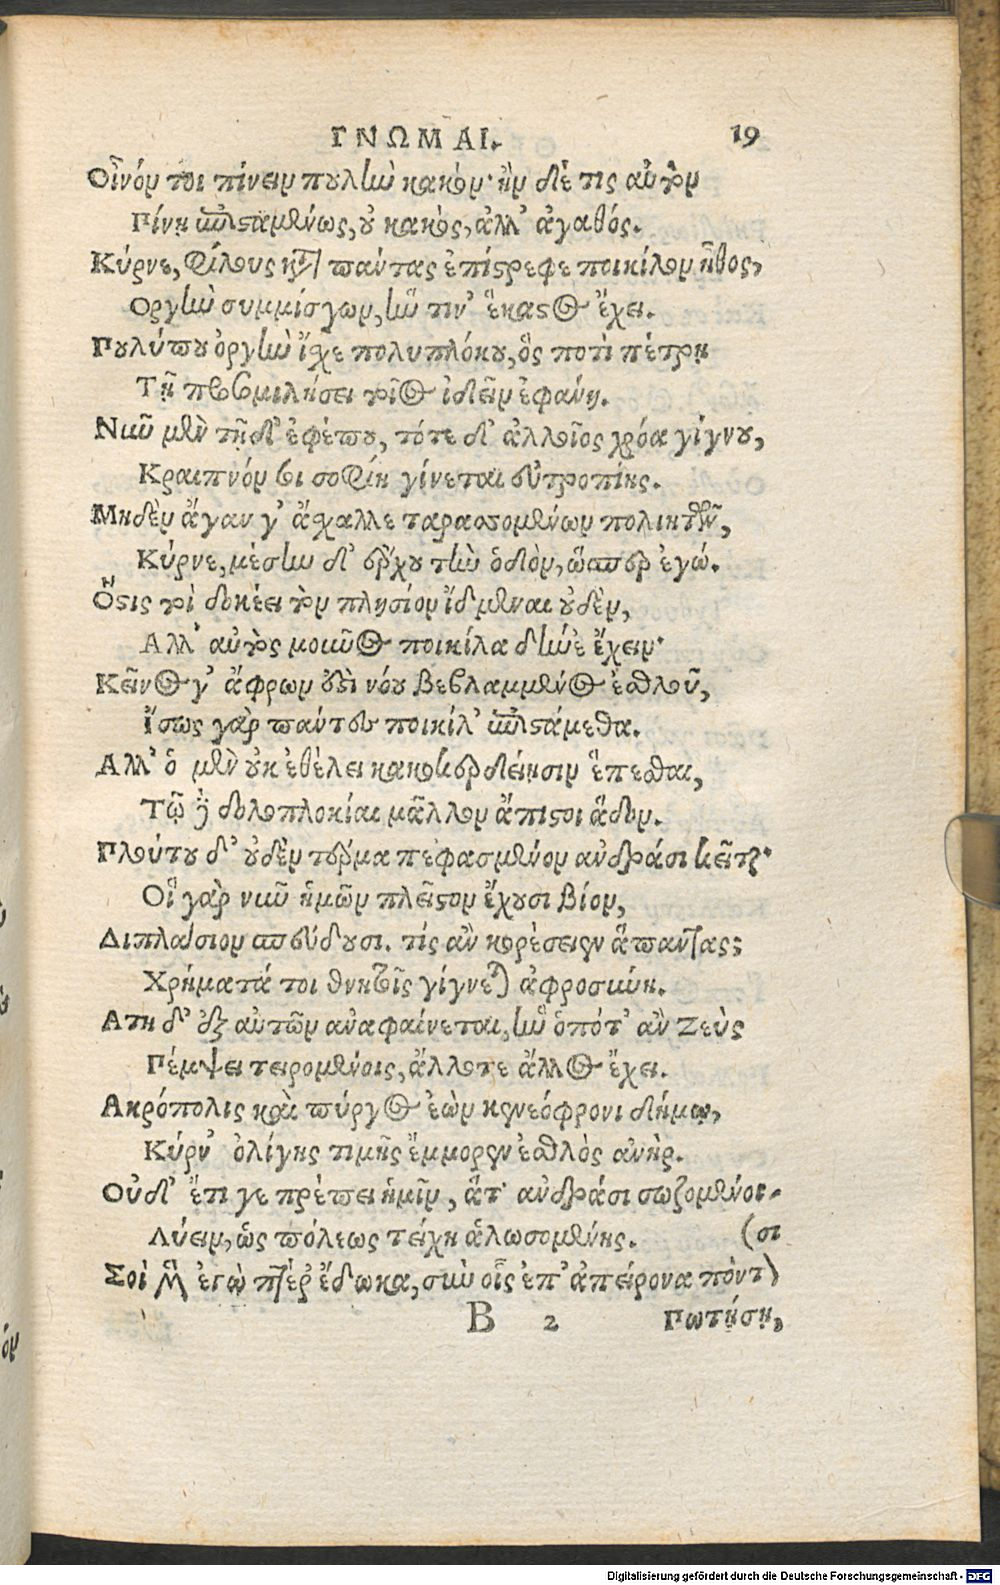 ΓΝΩΜΑΙ. 19
Οἶνόν τοι πίνειν πουλὺν κακόν· ἢν δέ τις αὐτὸν
Πίνῃ ἐπισταμένως, οὐ κακὸς, ἀλλ' ἀγαθός.
Κύρνε, φίλους κατὰ πάντας ἐπίστρεφε ποικίλον ἦθος,
Οργὴν συμμίσγων, ἥν τιν' ἕκαστος ἔχει.
Πουλύπου ὀργὴν ἴσχε πολυπλόκου, ὃς ποτὶ πέτρῃ
Τῇ προσομιλήσει τοῖος ἰδεῖν ἐφάνη.
Νῦν μὲν τῇ δ' ἐφέπου, τότε δ' ἀλλοῖος χρόα γίγνου,
Κραιπνόν τοι σοφίη γίνεται εὐτροπίης.
Μηδὲν ἄγαν γ' ἄσχαλλε ταρασσομένων πολιητῶν,
Κύρνε, μέσην δ' ἔρχου τὴν ὁδὸν, ὥσπερ ἐγώ.
Ὅστις τοὶ δοκέει τὸν πλησίον ἴδμεναι οὐδὲν,
Αλλ' αὐτὸς μοῦνος ποικίλα δήνε' ἔχειν·
Κεῖνος γ' ἄφρων ἐστὶ νόου βεβλαμμένος ἐσθλοῦ,
Ἴσως γὰρ πάντες ποικίλ' ἐπιστάμεθα.
Αλλ' ὁ μὲν οὐκ ἐθέλει κακοκερδείῃσιν ἕπεσθαι,
Τῷ δὲ δολοπλοκίαι μᾶλλον ἄπιστοι ἅδον.
Πλούτου δ' οὐδὲν τέρμα πεφασμένον ἀνδράσι κεῖται·
Οἳ γὰρ νῦν ἡμῶν πλεῖστον ἔχουσι βίον,
Διπλάσιον σπεύδουσι. τίς ἂν κορέσειεν ἅπαντας;
Χρήματά τοι θνητοῖς γίγνεται ἀφροσύνη.
Ατη δ' ἐξ αὐτῶν ἀναφαίνεται, ἣν ὁπότ' ἂν Ζεὺς
Πέμψει τειρομένοις, ἄλλοτε ἄλλος ἔχει.
Ακρόπολις καὶ πύργος ἐὼν κενεόφρονι δήμῳ,
Κύρν' ὀλίγης τιμῆς ἔμμορεν ἐσθλὸς ἀνήρ.
Οὐδ' ἔτι γε πρέπει ἡμῖν, ἅτ' ἀνδράσι σωζομένοι-
Λύειν, ὡς πόλεως τείχη ἁλωσομένης. (σι
Σοὶ μὲν ἐγὼ πτέρ' ἔδωκα, σὺν οἷς ἐπ' ἀπείρονα πόντον
B 2 Πωτήσῃ,
Digitalisierung gefördert durch die Deutsche Forschungsgemeinschaft - DFG